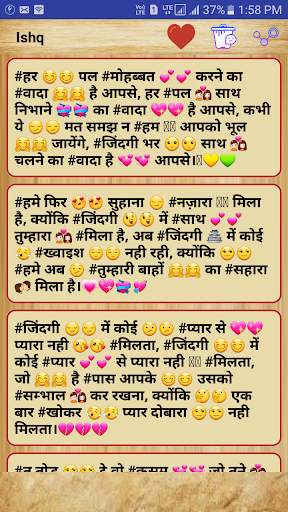 Voᵢ) LTE LTE 1:58 PM
Ishq
#हर 😊😊 पल #मोहब्बत 💕💕 करने का
#वादा 🤗🤗 है आपसे, हर #पल 💏 साथ
निभाने 💝💝 का #वादा 💖💖 है आपसे, कभी
ये 😏😏 मत समझ न #हम आपको भूल
जायेंगे, #जिंदगी भर 😊😊 साथ 💏
चलने का #वादा है 💖💖 आपसे।💛💚
#हमे फिर 😍😍 सुहाना 😊 #नज़ारा मिला
है, क्योंकि #जिंदगी 😘😘 में #साथ 💕💕
तुम्हारा 💏 #मिला है, अब #जिंदगी में कोई
#ख्वाइश 😊😊 नही रही, क्योंकि 😊😊
#हमे अब #तुम्हारी बाहों 🤗🤗 का #सहारा
#मिला है।
#जिंदगी 😊😊 में कोई 😕😕 #प्यार से 💖💖
प्यारा नही #मिलता, #जिंदगी 😊😊 में कोई
#प्यार 💕💕 से प्यारा नही #मिलता,
जो 🤗🤗 है #पास आपके 😊😊 उसको
#सम्भाल 💏 कर रखना, क्योंकि 🤔🤔 एक
बार #खोकर 😥😥 प्यार दोबारा 😏😏 नही
मिलता।💔💔💔